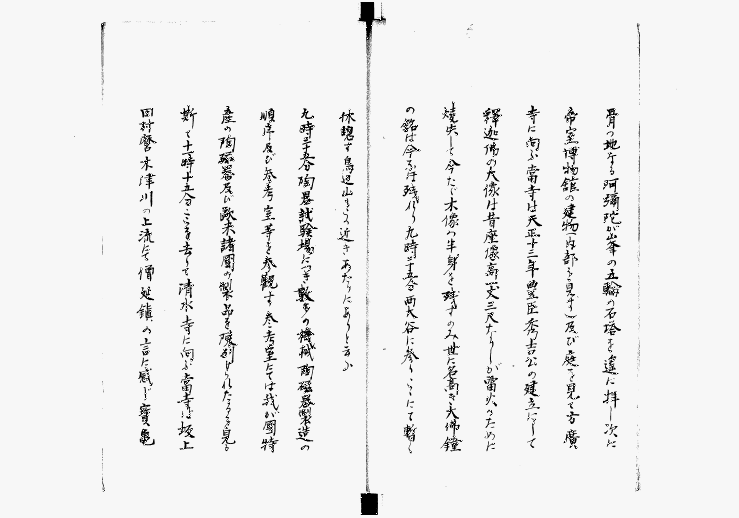 骨の地なる阿彌陀が峯の五輪の石塔を遥に拝し次に
帝室博物館の建物(内部を見ず)及び庭を見て方廣
寺に向ふ當寺は天正十三年豊臣秀吉公の建立にして
釋迦佛の大像は昔座像高六丈三尺なりしが雷火のために
焼失して今たゞ木像の半身を残すのみ世に名高き大佛鐘
の銘は今なほ残れり九時二十五分両大谷に参りここにて暫し
休憩す鳥辺山もこの近きあたりにありと云ふ
九時三十五分陶器試験場につき数多の機械陶磁器製造の
順序及び参考室等を参観す参考室にては我が國特
産の陶磁器及び歐米諸國の製品を陳列せられたるを見る
斯て十一時十五分ここを去りて清水寺に向ふ當寺は坂上
田村麿木津川の上流にて僧延鎮の言に感じ寶亀